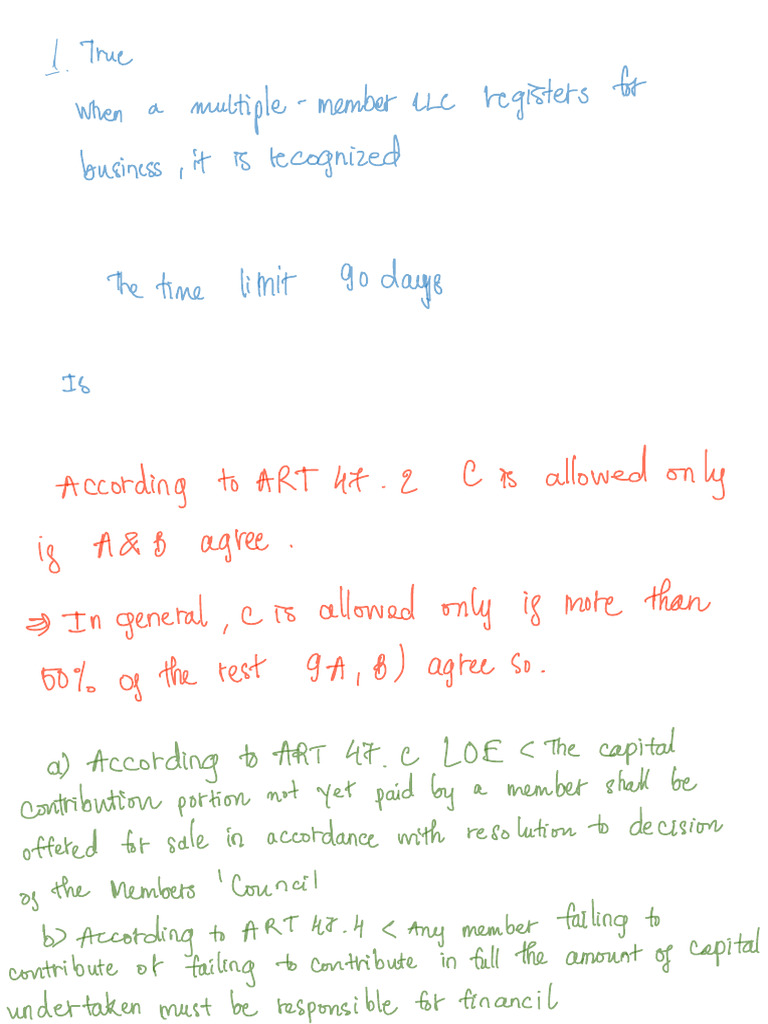 1. True
When a multiple - member LLC registers for
business, it is recognized
The time limit 90 days
Is
According to ART 47.2 C is allowed only
if A & B agree.
⇒ In general, C is allowed only if more than
50% of the rest (A, B) agree so.
a) According to ART 47.c LOE < The capital
contribution portion not yet paid by a member shall be
offered for sale in accordance with resolution to decision
of the Members' Council
b) According to ART 47.4 < Any member failing to
contribute or failing to contribute in full the amount of capital
undertaken must be responsible for financil